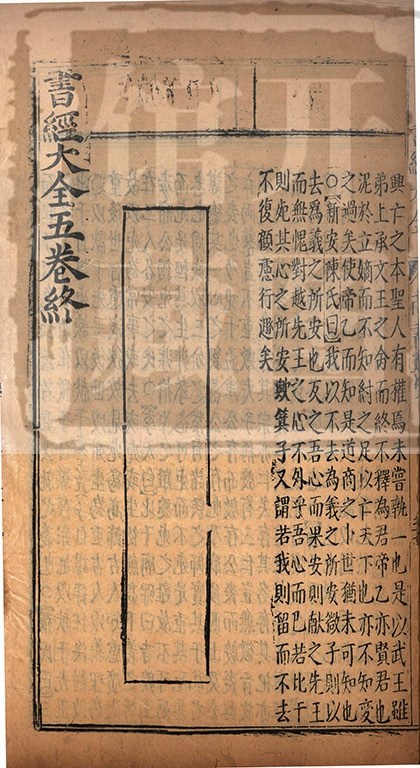 興亡之本聖人有權焉未嘗執一也是以武王雖
弟上承文王之命而終不釋為君帝乙亦賢君也
泥於立嫡而不知紂之足以亡天下也亦不知變
之過矣使帝乙而知是道商之小世猶未可知也
○新安陳氏曰我以不去為義之所安微子則以
去為義之所安也反之吾心而果安則獻之先王
而無愧對越先王之心不外乎吾心而已而比干
則死其心之所安歟箕子又謂若我則留而不去
不復顧慮行遯矣
書經大全五卷終